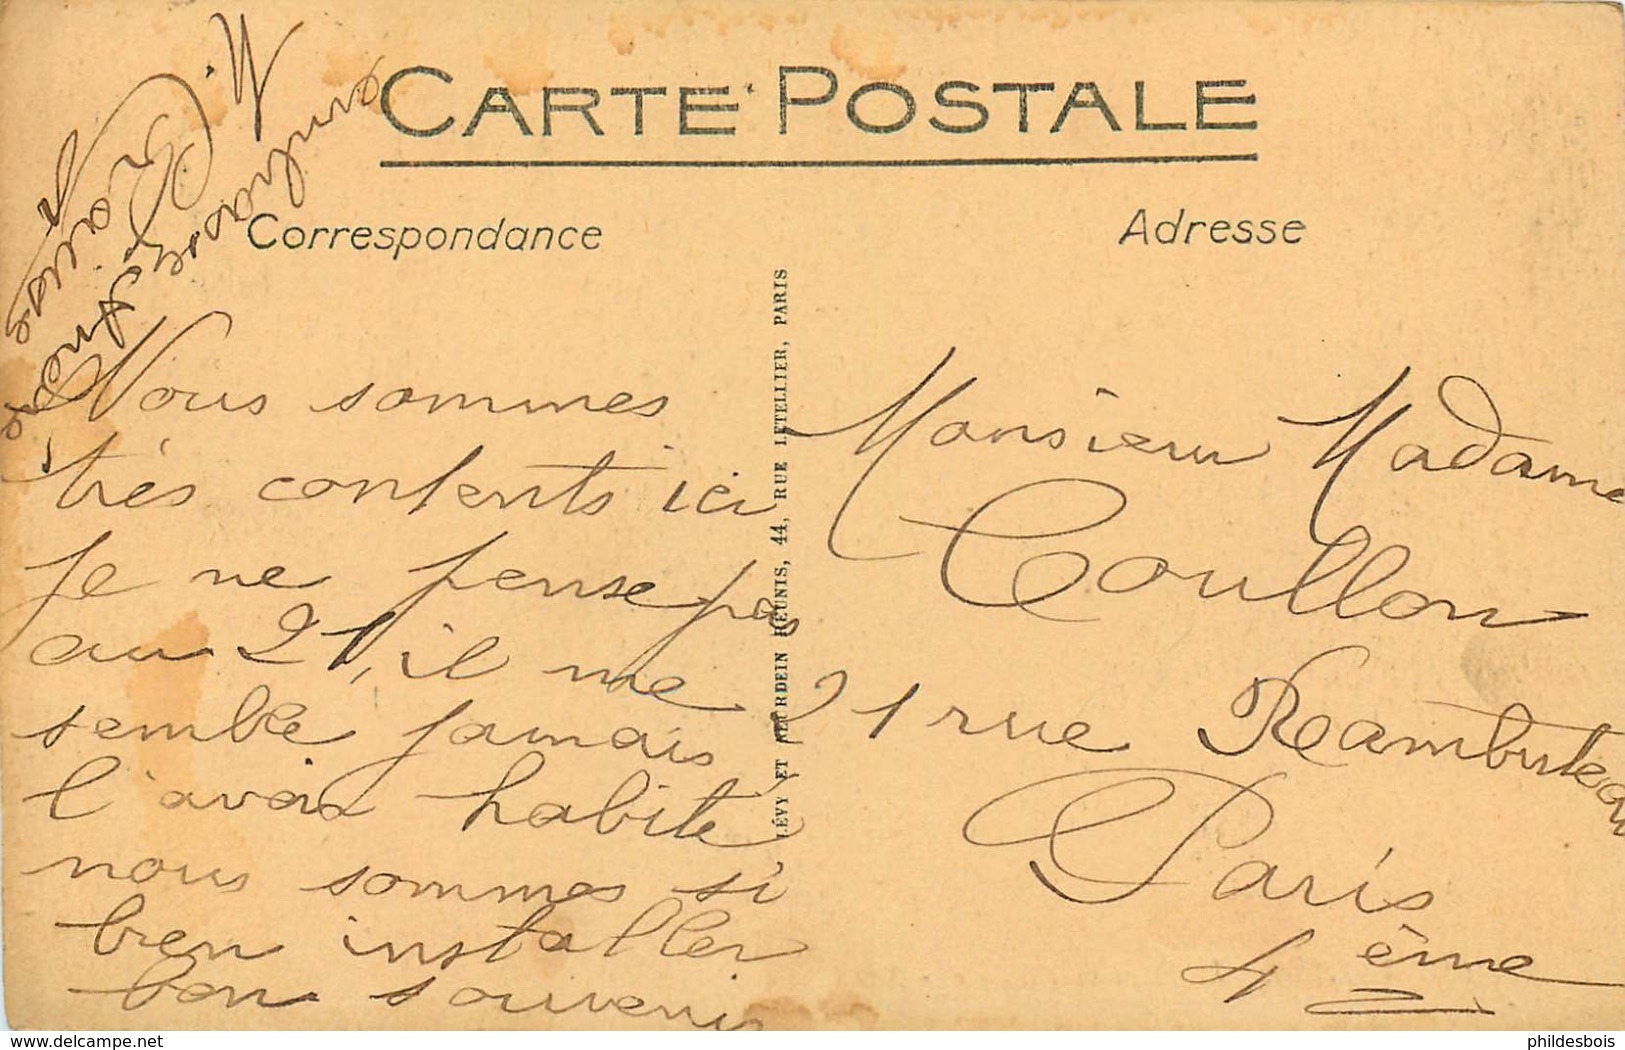 CARTE POSTALE
Correspondance
Adresse
Nous sommes
très contents ici
je ne pense pas
au 21, il me
semble jamais
l'avoir habite
nous sommes si
bien installer
bon souvenir
Monsieur Madame
Coullon
21 rue Rambuteau
Paris
4 ème
LÉVY ET NEURDEIN RÉUNIS, 44, RUE LETELLIER, PARIS
delcampe.net
phildesbois